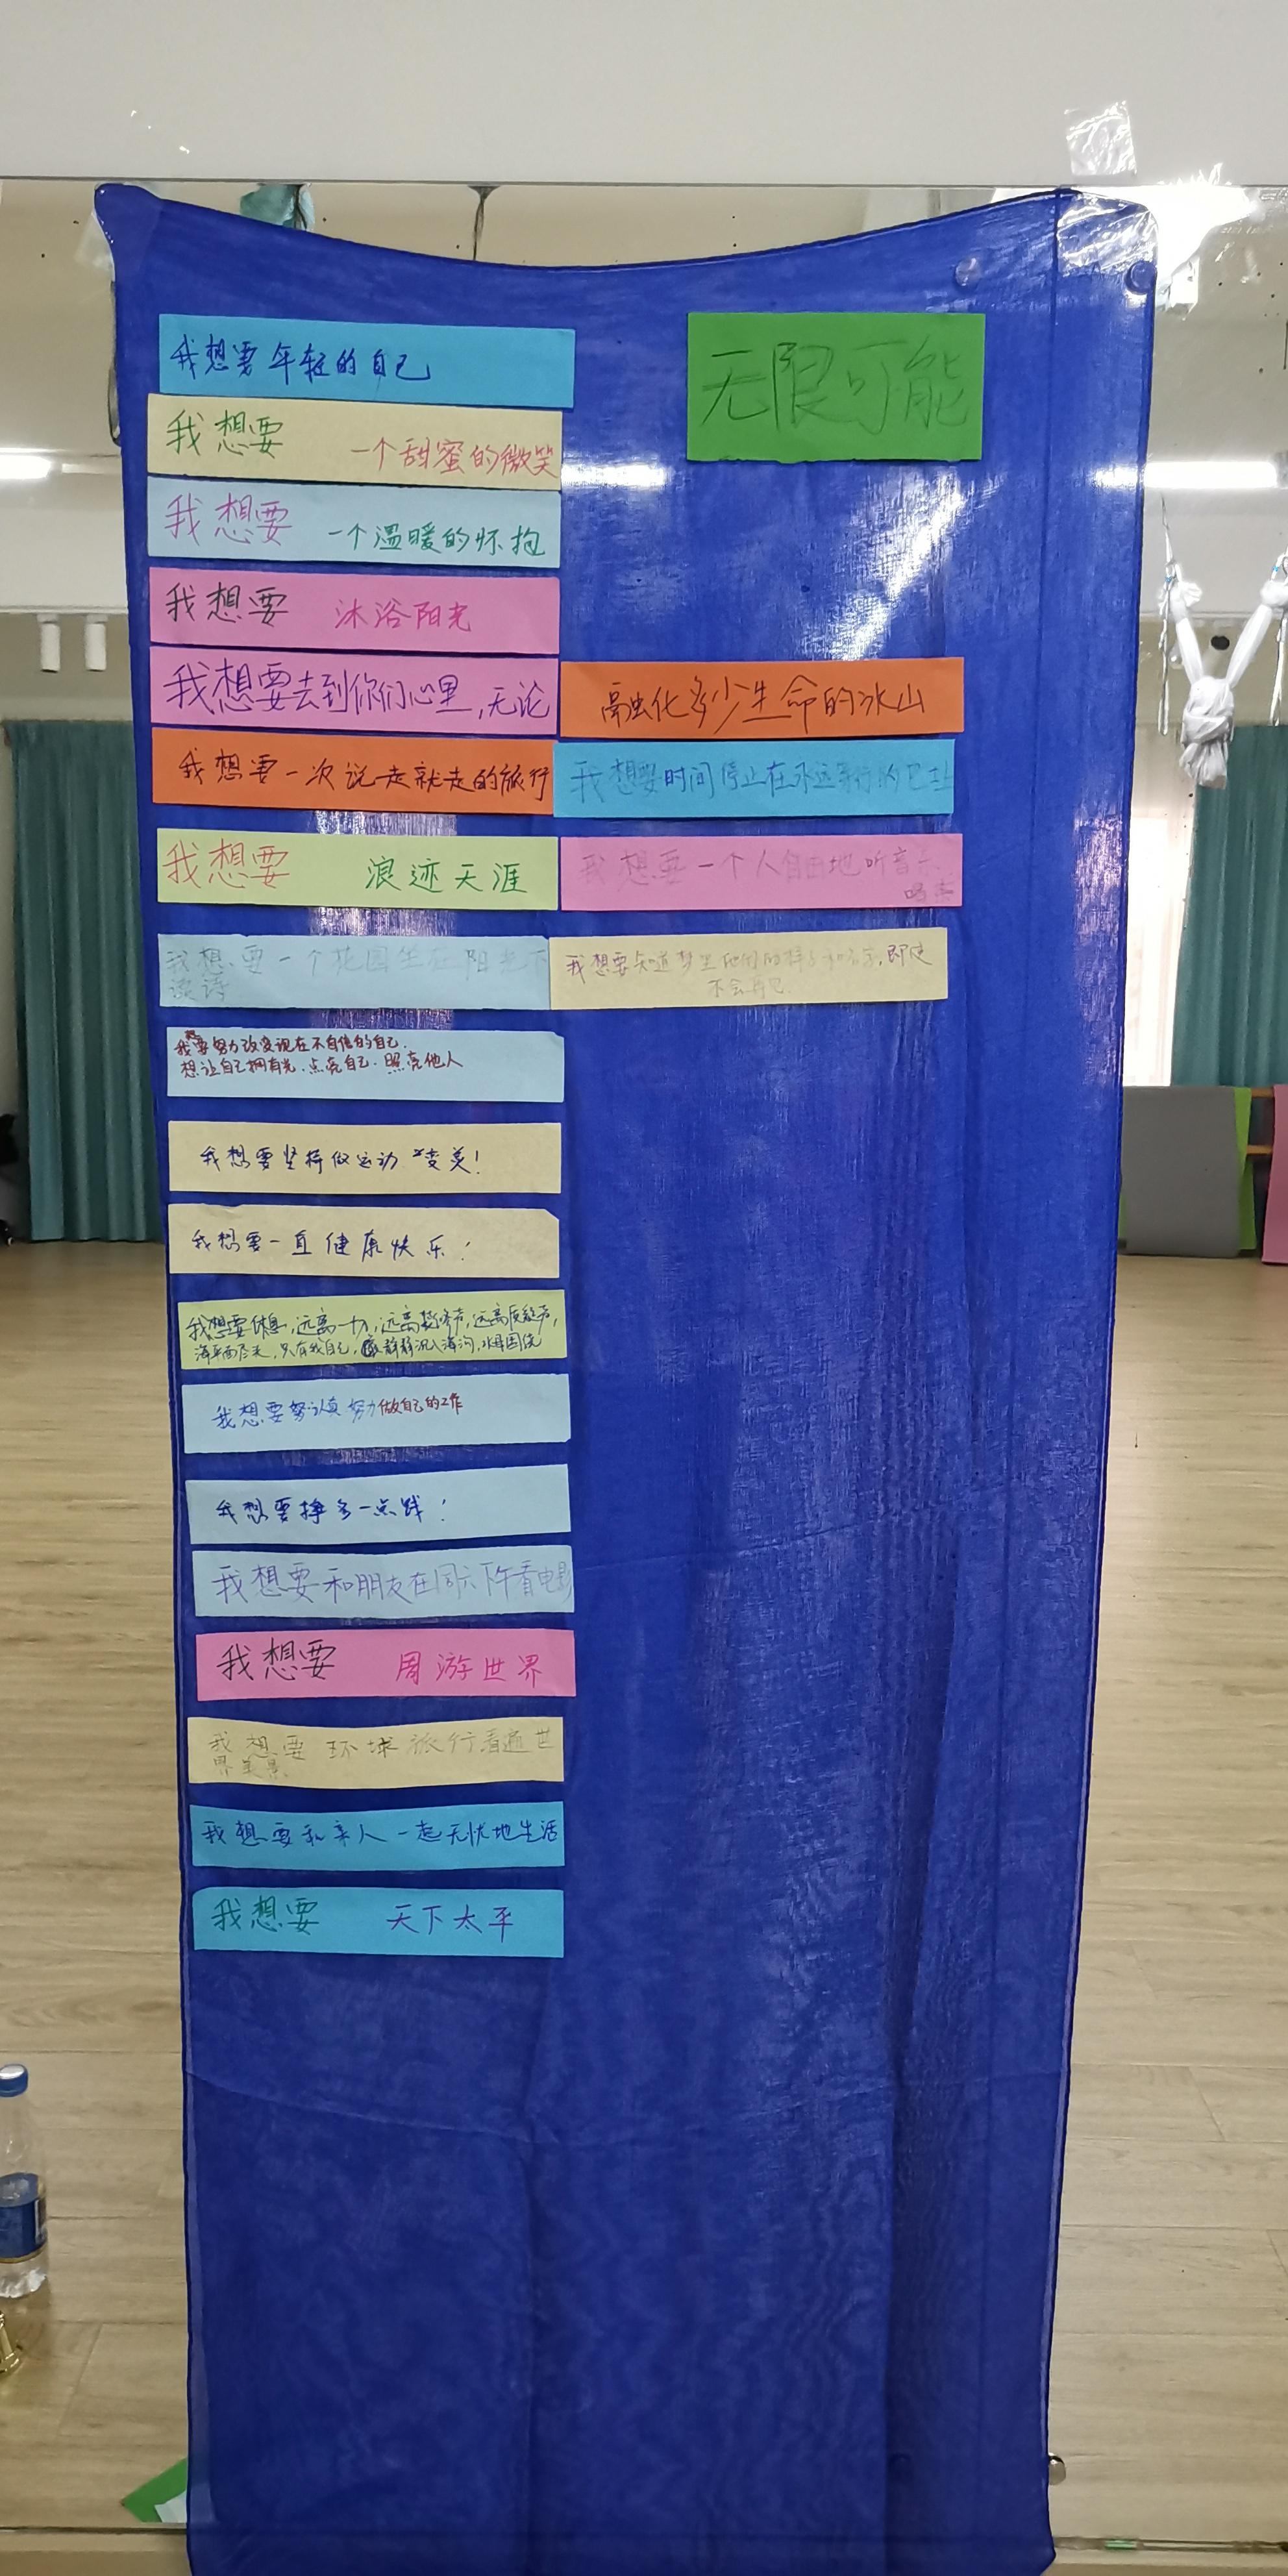 无限可能
我想要年轻的自己
我想要 一个甜蜜的微笑
我想要 一个温暖的怀抱
我想要 沐浴阳光
我想要去到你们心里,无论
融化多少生命的冰山
我想要一次说走就走的旅行
我想要时间停止在永远等行的巴士
我想要 浪迹天涯
我想要一个人自由地听音乐
唱歌
我想要一个花园坐在阳光下
读诗
我想要知道梦里他们的样子和名字,即使
不会再见
我想要努力改变现在不自信的自己.
想让自己拥有光.点亮自己.照亮他人
我想要坚持做运动 变美!
我想要一直健康快乐!
我想要休息,远离一切,远离 声,远离质疑声,
海平面 ,只有我自己,静静沉入海沟,水母围绕
我想要认真努力做自己的工作
我想要挣多一点钱!
我想要和朋友在周六下午看电影
我想要 周游世界
我想要 环球旅行看遍世
界美景
我想要和亲人一起无忧地生活
我想要 天下太平